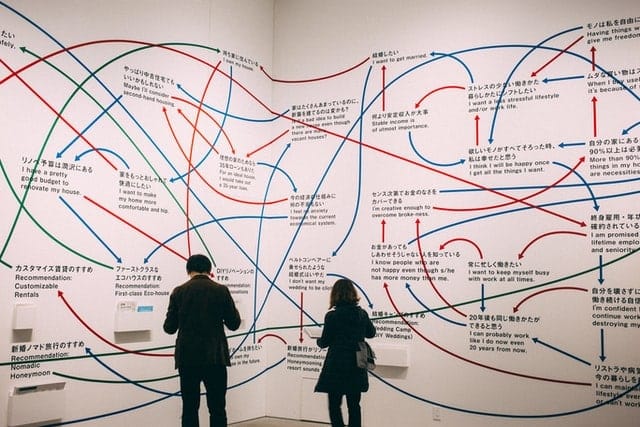 たい
safely.
持ち家に住んでいる
I own my house.
やっぱり中古住宅でも
いいかもしれない
Maybe I'll consider
second-hand housing.
リノベ予算は潤沢にある
I have a pretty
good budget to
renovate my house.
家をもっとおしゃれで
快適にしたい
I want to make
my home more
comfortable and hip.
理想の家のためなら
35年ローンもありだ
For an ideal house,
I would take out
a 35-year loan.
家はたくさんあまっているのに、
新築を建てるのは変かも?
a bad idea to build
a new house even though
there are many
vacant houses?
今の経済の仕組みに
何の不安もない
I feel no anxiety
towards the current
economical system.
カスタマイズ賃貸のすすめ
Recommendation:
Customizable
Rentals
ファーストクラスな
エコハウスのすすめ
Recommendation:
First-class Eco-house
DIYリノベーションの
新婚ノマド旅行のすすめ
Recommendation:
Nomadic
Honeymoon
in the future.
ベルトコンベアーに
乗せられたような
結婚式はいやだ
I don't want my
wedding to be
新婚旅行が
Recommendation:
Honeymooning
resort snouts
結婚したい
I want to get married.
何より安定収入が大事
Stable income is
of utmost importance.
ストレスの少ない働きかた
暮らしかたにシフトしたい
I want a less stressful lifestyle
and/or work life.
欲しいモノがすべてそろった時、
私は幸せだと思う
I think I will be happy once
I get all the things I want.
センス次第でお金のなさを
カバーできる
I'm creative enough to
overcome broke-ness.
お金があっても
しあわせそうじゃない人を知っている
I know people who are
not happy even though s/he
has more money than
常に忙しく働きたい
I want to keep myself busy
with work at all times.
Recommendation:
Wedding Camp
20年後も同じ働きかたが
できると思う
I can probably work
like I do now even
20 years from now.
モノは私を自由に
Having things
give me freedom
ムダな買い物は
When I buy
it's because of
自分の家にある
90%以上は必
More than 90%
things in my ho
are necessities
終身雇用・年
確約されている
I am promised
lifetime emplo
and seniority
自分を壊さずに
働き続ける自
I'm confident I
continue work
destroying my
リストラや病気
今の暮らしを
I can maintai
lifestyle even
or can't work